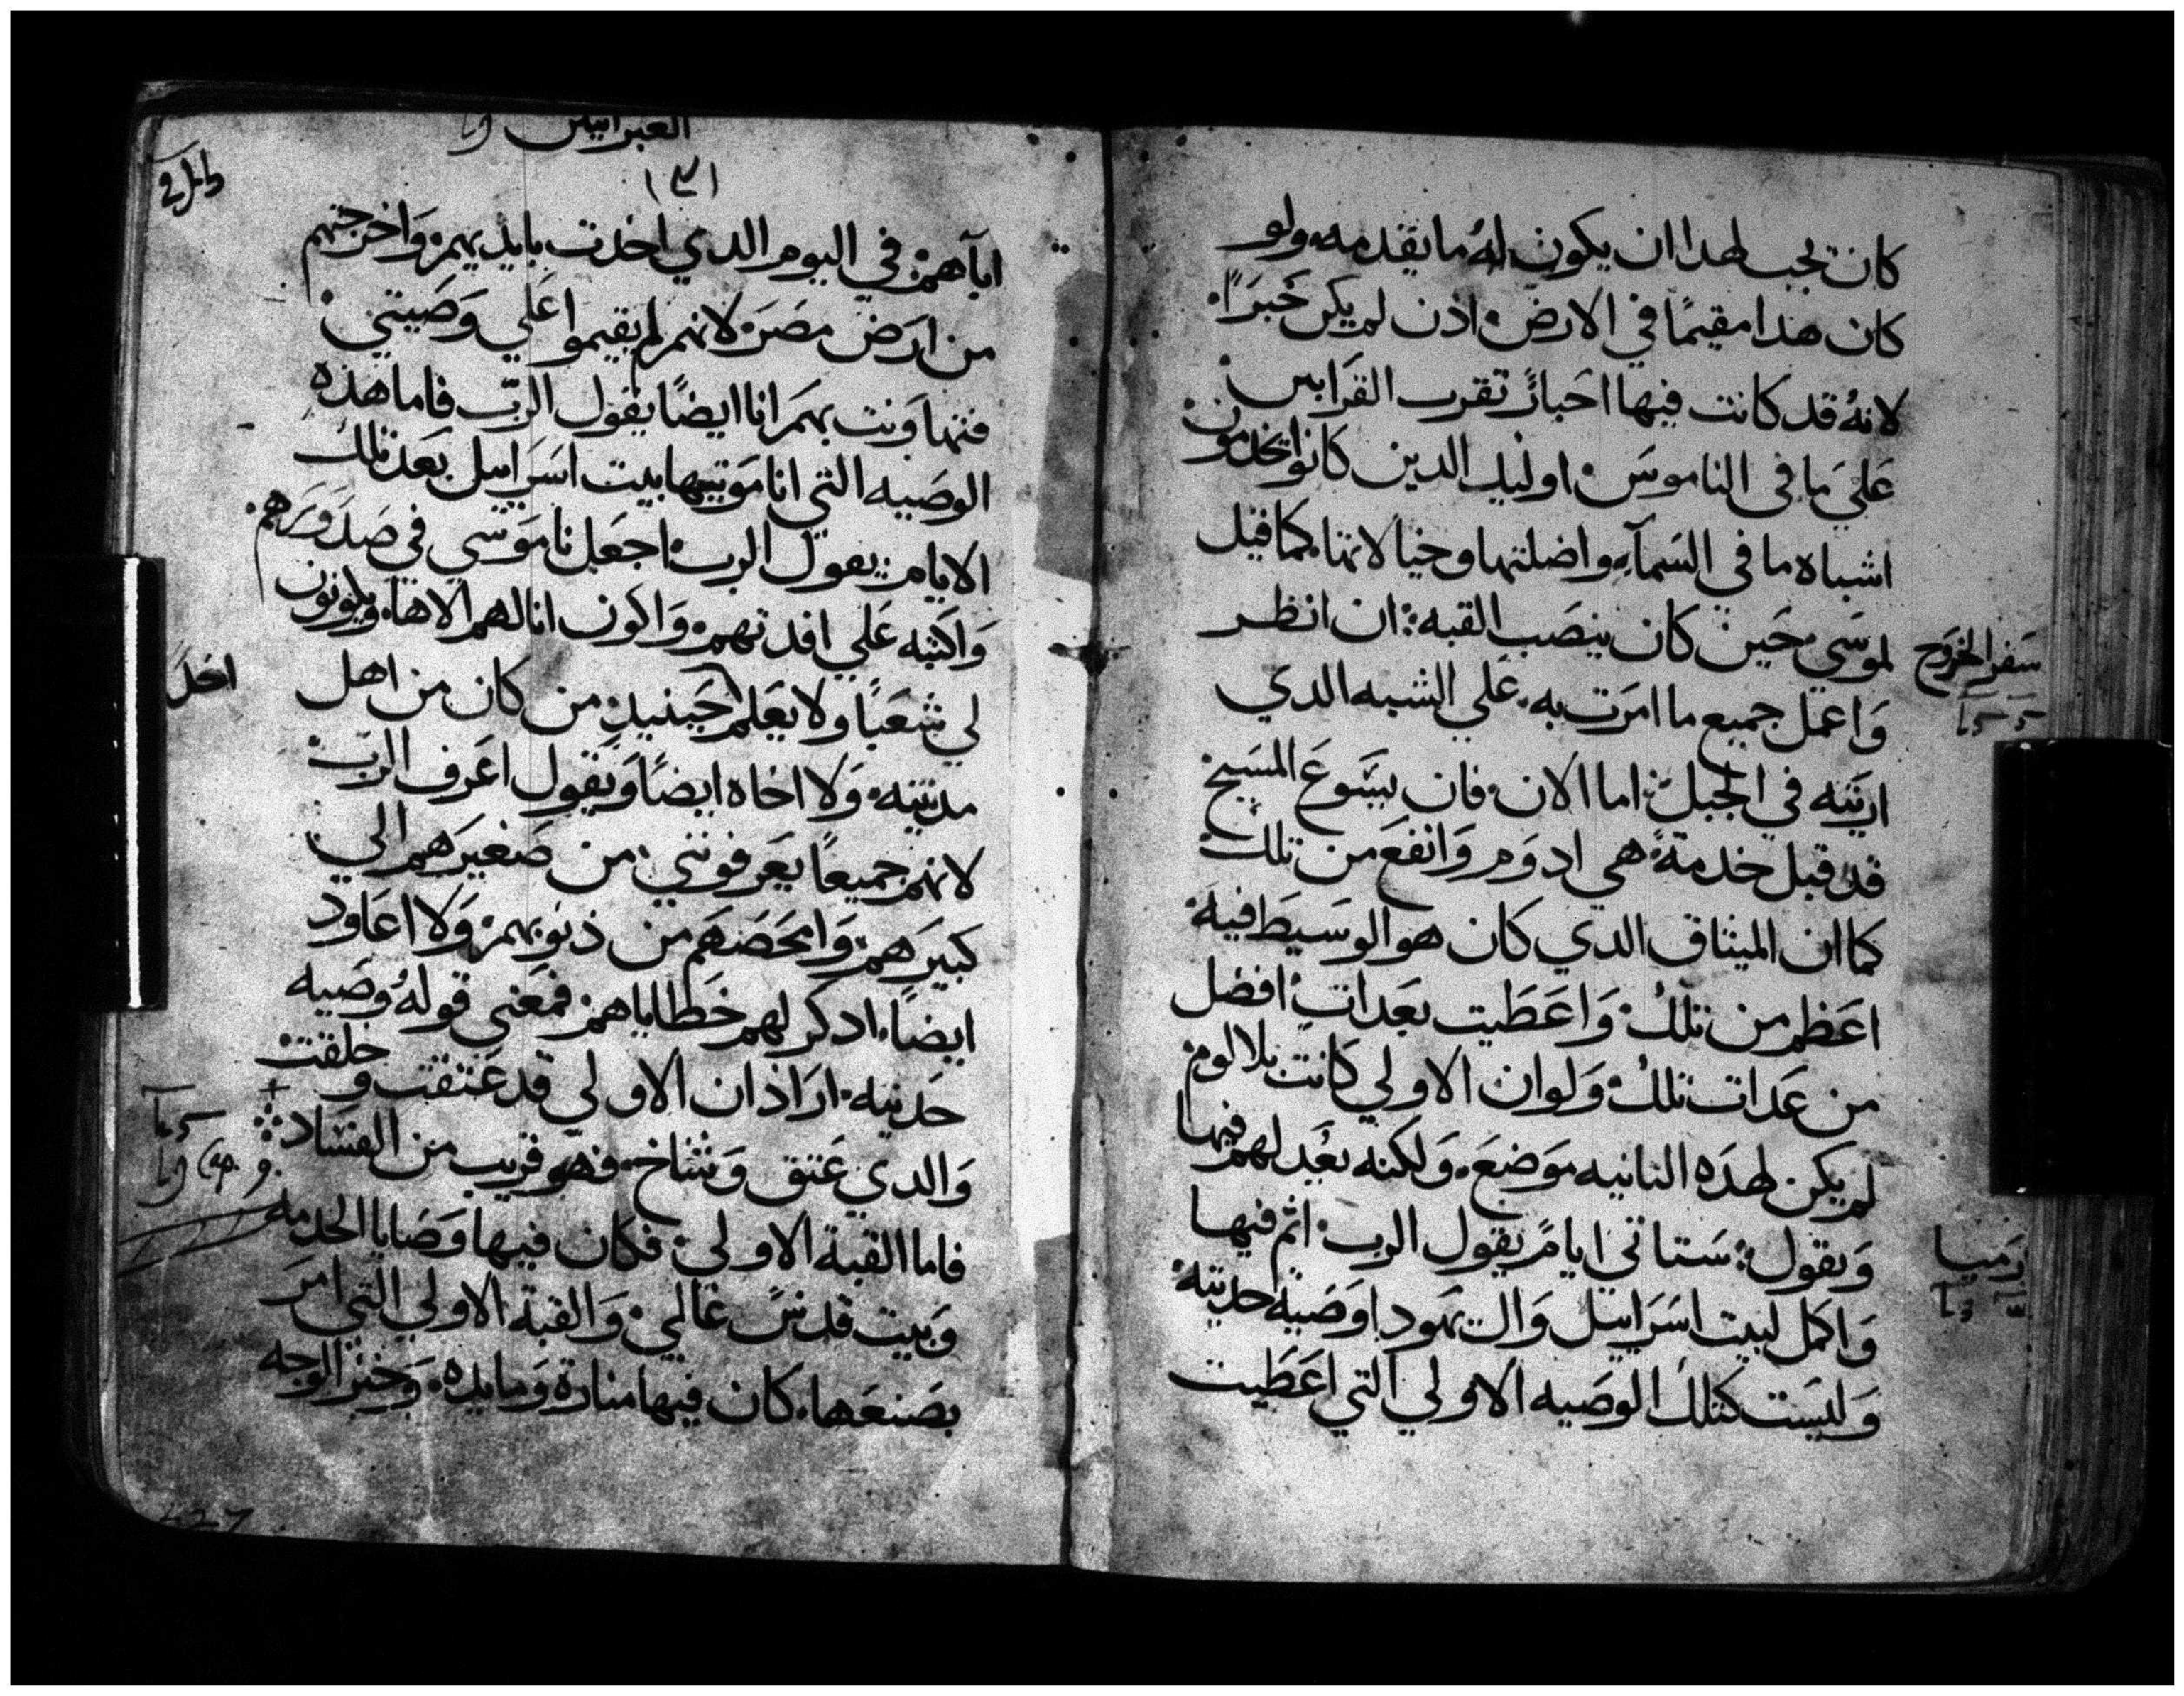 كانت تجب لهدا ان يكون له ما يقدمه ولو
كان هدا مقيمًا في الارض اذن لم يكن حَبرَا
لانهُ قد كانت فيها احبارٌ تقرب القرابين
عَليَ مَا في الناموسَ اوليك الدين كانوا يخدمون
اشباه ما في السمآء واضلتها وخيالاتها كما قيل
لموسَي حَين كان ينصَب القبه ان انظر
وَاعمل جميع ما امرَت به عَلي الشبه الدي
اريته في الجبل اما الان فان يسَوعَ المسَيح
قد قبل خدمةً هي ادوَم وَانفعَ من تلك
كما ان الميثاق الدي كان هو الوسَيطَ فيه
اعَظم من تلك وَاعَطَيت بعَدات افضل
من عَدات تلك وَلوان الاولي كانت بلا لوم
لم يكن لهدَه الثانيه موَضعَ وَلكنه يعَدلهم فيها
وَيقول سَتاتي ايامٌ يقول الرب اتم فيها
وَاكمل لبيت اسَرَاييل وَال يهودا وَصَيه حديثه
وَليسَت كتلك الوصَيه الاولي التي اعَطَيت
سَفر الخرَوج
رَميا
العبرانيين
ابآهم في اليوم الدي اخدت بايديهم وَاخرجتهم
من ارَض مصَرَ لانهم لم يقيموا عَلي وَصَيتي
فتهاوَنت بهمَ انا ايضًا يقول الربّ فاما هذه
الوصَيه التي انا موَتيها بيت اسَرَاييل بعَد تلك
الايام يقول الرب اجعَل ناموَسَي في صَدوَرَهم
وَاكتبه عَلي افدتهم وَاكون انا لهم الاها ويكونون
لي شعَبًا ولا يعَلم حَينيد من كان من اهل
احَد
مدينته وَلا اخاه ايضًا وَيقول اعَرف الرَب
لانهم جميعًا يعَرفونني من صَغيرَهم الي
كبيرَهم وَامحَصَهَم من ذنوَبهم وَلا اعَاود
ايضًا ادكر لهم خَطاياهم فمعَني قولهُ وصَيه
حَديثه ارَاذ ان الاولي قد عَتقت و خلقت
وَالدي عَتق وَشاخ فهوَ قريب من الفسَاد
فاما القبة الاولي فكان فيها وَصَايا الخدمه
وَبيت قدسٌ عَالمي وَالقبة الاولي التي امرَ
بصَنعَها كان فيها منارة وَمايده وَخبز الوجه